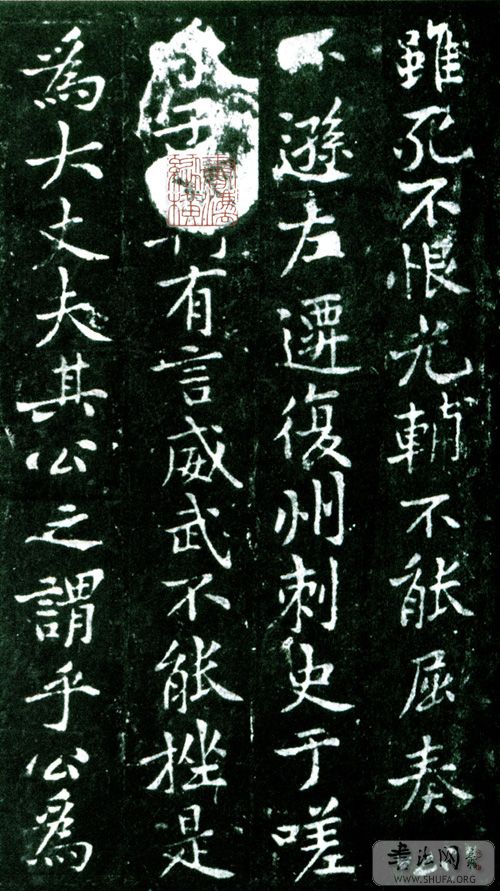 雖死不恨光輔不能屈奏
不遜左遷復州刺史于嗟
有言威武不能挫是
爲大丈夫其公之謂乎公爲
书法网
WWW.SHUFA.ORG